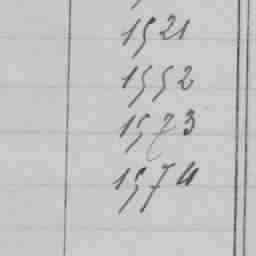 1521
1552
1573
1574